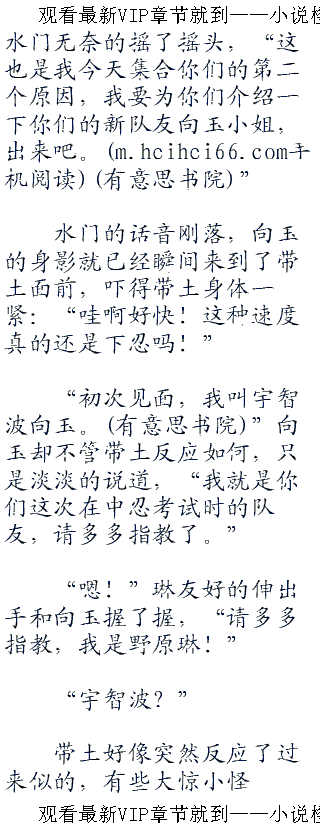 观看最新VIP章节就到——小说
水门无奈的摇了摇头，“这
也是我今天集合你们的第二
个原因，我要为你们介绍一
下你们的新队友向玉小姐，
出来吧。(m.hcihci66.com手
机阅读)(有意思书院)”
水门的话音刚落，向玉
的身影就已经瞬间来到了带
土面前，吓得带土身体一
紧：“哇啊好快！这种速度
真的还是下忍吗！”
“初次见面，我叫宇智
波向玉。(有意思书院)”向
玉却不管带土反应如何，只
是淡淡的说道，“我就是你
们这次在中忍考试时的队
友，请多多指教了。”
“嗯！”琳友好的伸出
手和向玉握了握，“请多多
指教，我是野原琳！”
“宇智波？”
带土好像突然反应了过
来似的，有些大惊小怪
观看最新VIP章节就到——小说